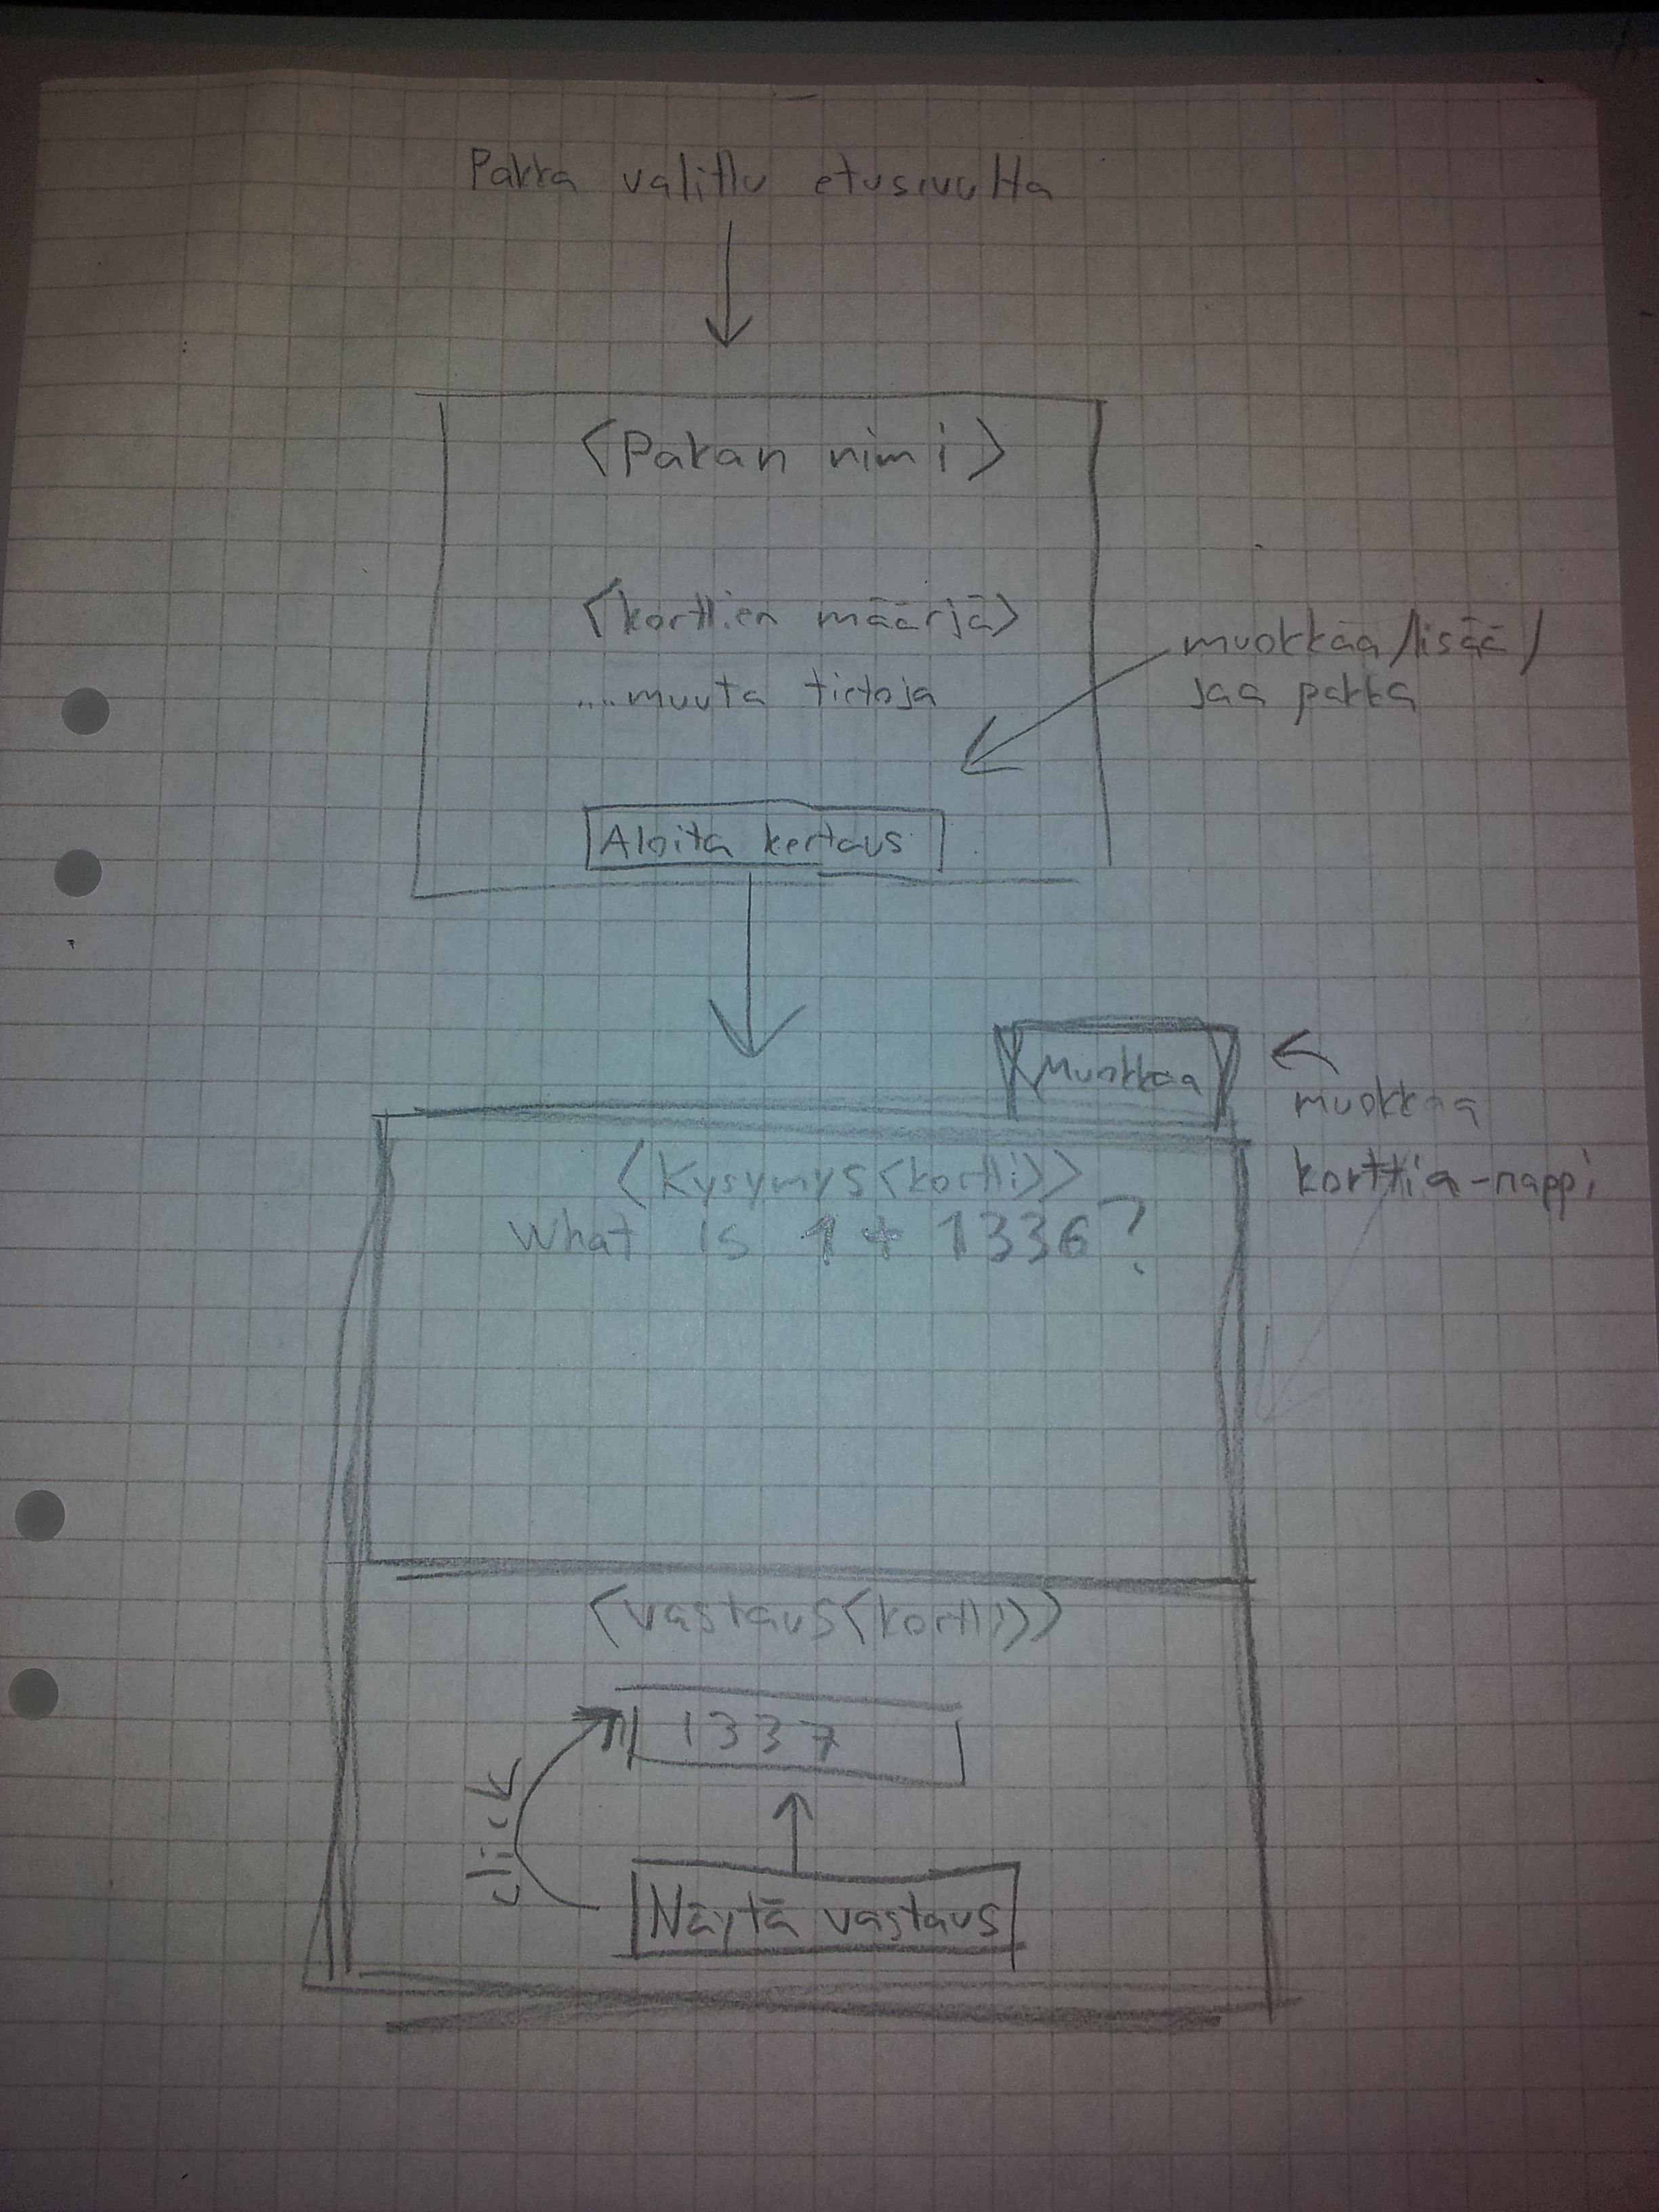 Pakka valittu etusivulta
<Pakan nimi>
<korttien määrjä>
....muuta tietoja
muokkaa/lisää/
jaa pakka
Aloita kertaus
Muokkaa
muokkaa
korttia-nappi
<Kysymys<kortti>>
What is 1 + 1336?
<vastaus<kortti>>
1337
click
Näytä vastaus